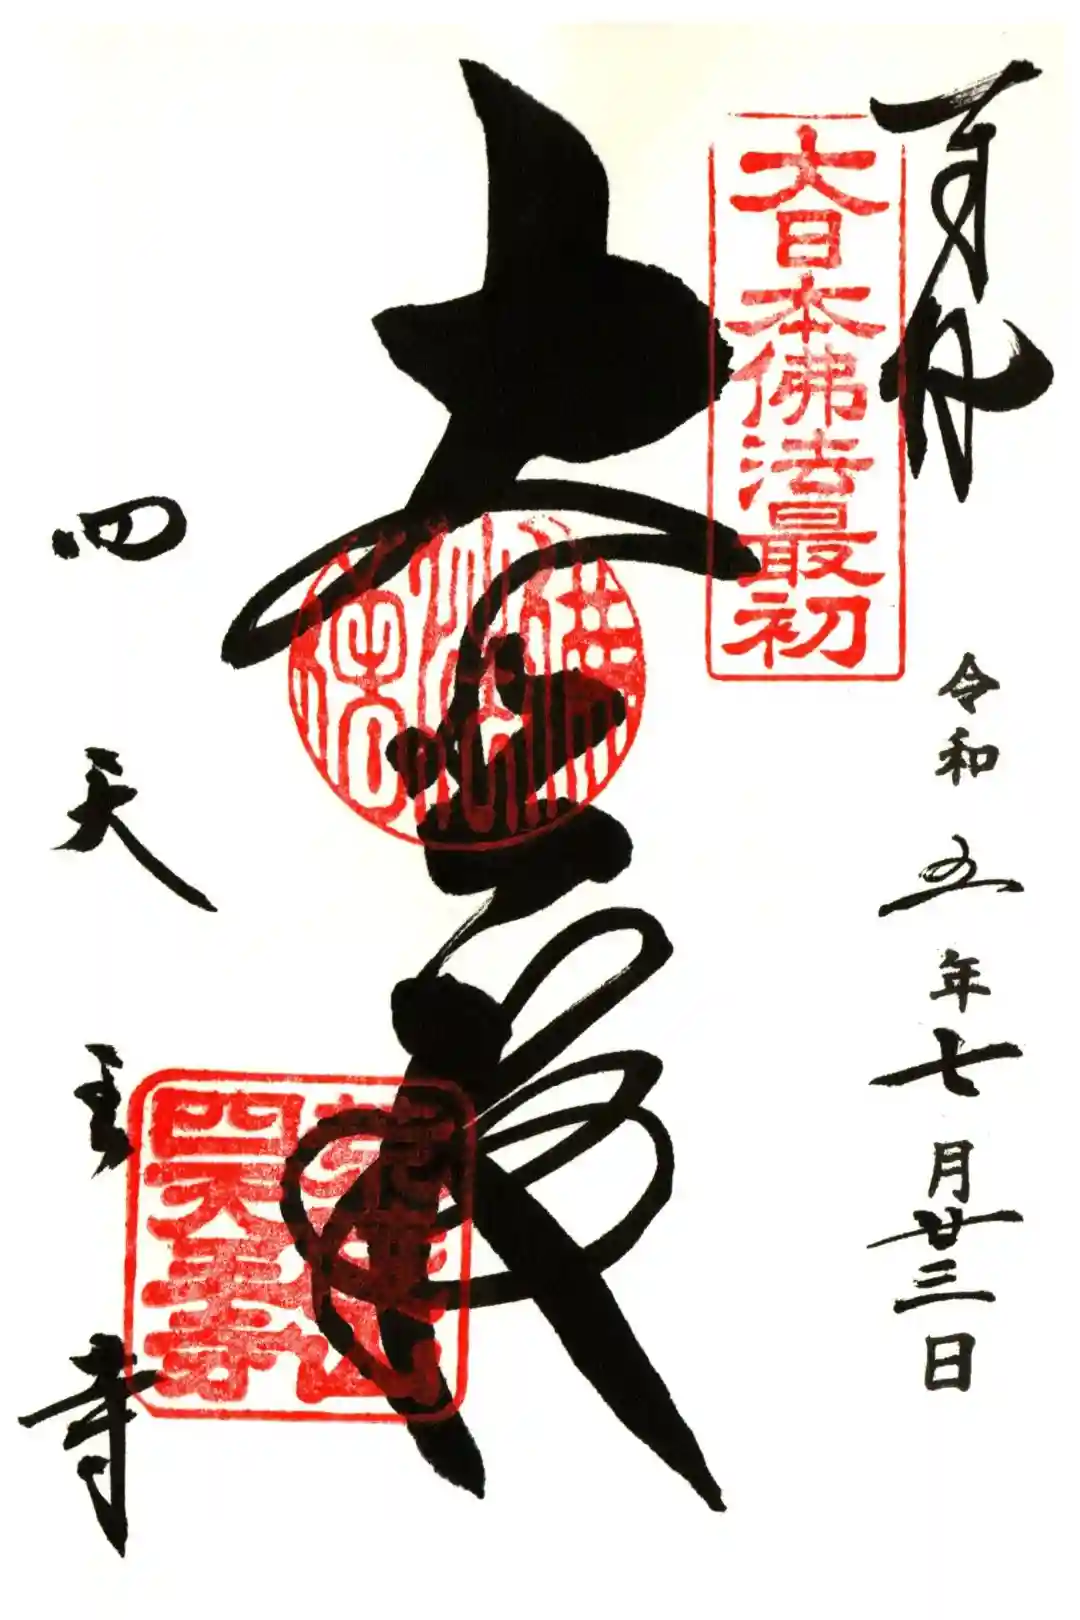 奉拝
大日本佛法最初
令和五年七月廿三日
大悲殿
四天王寺
荒陵山
四天王寺